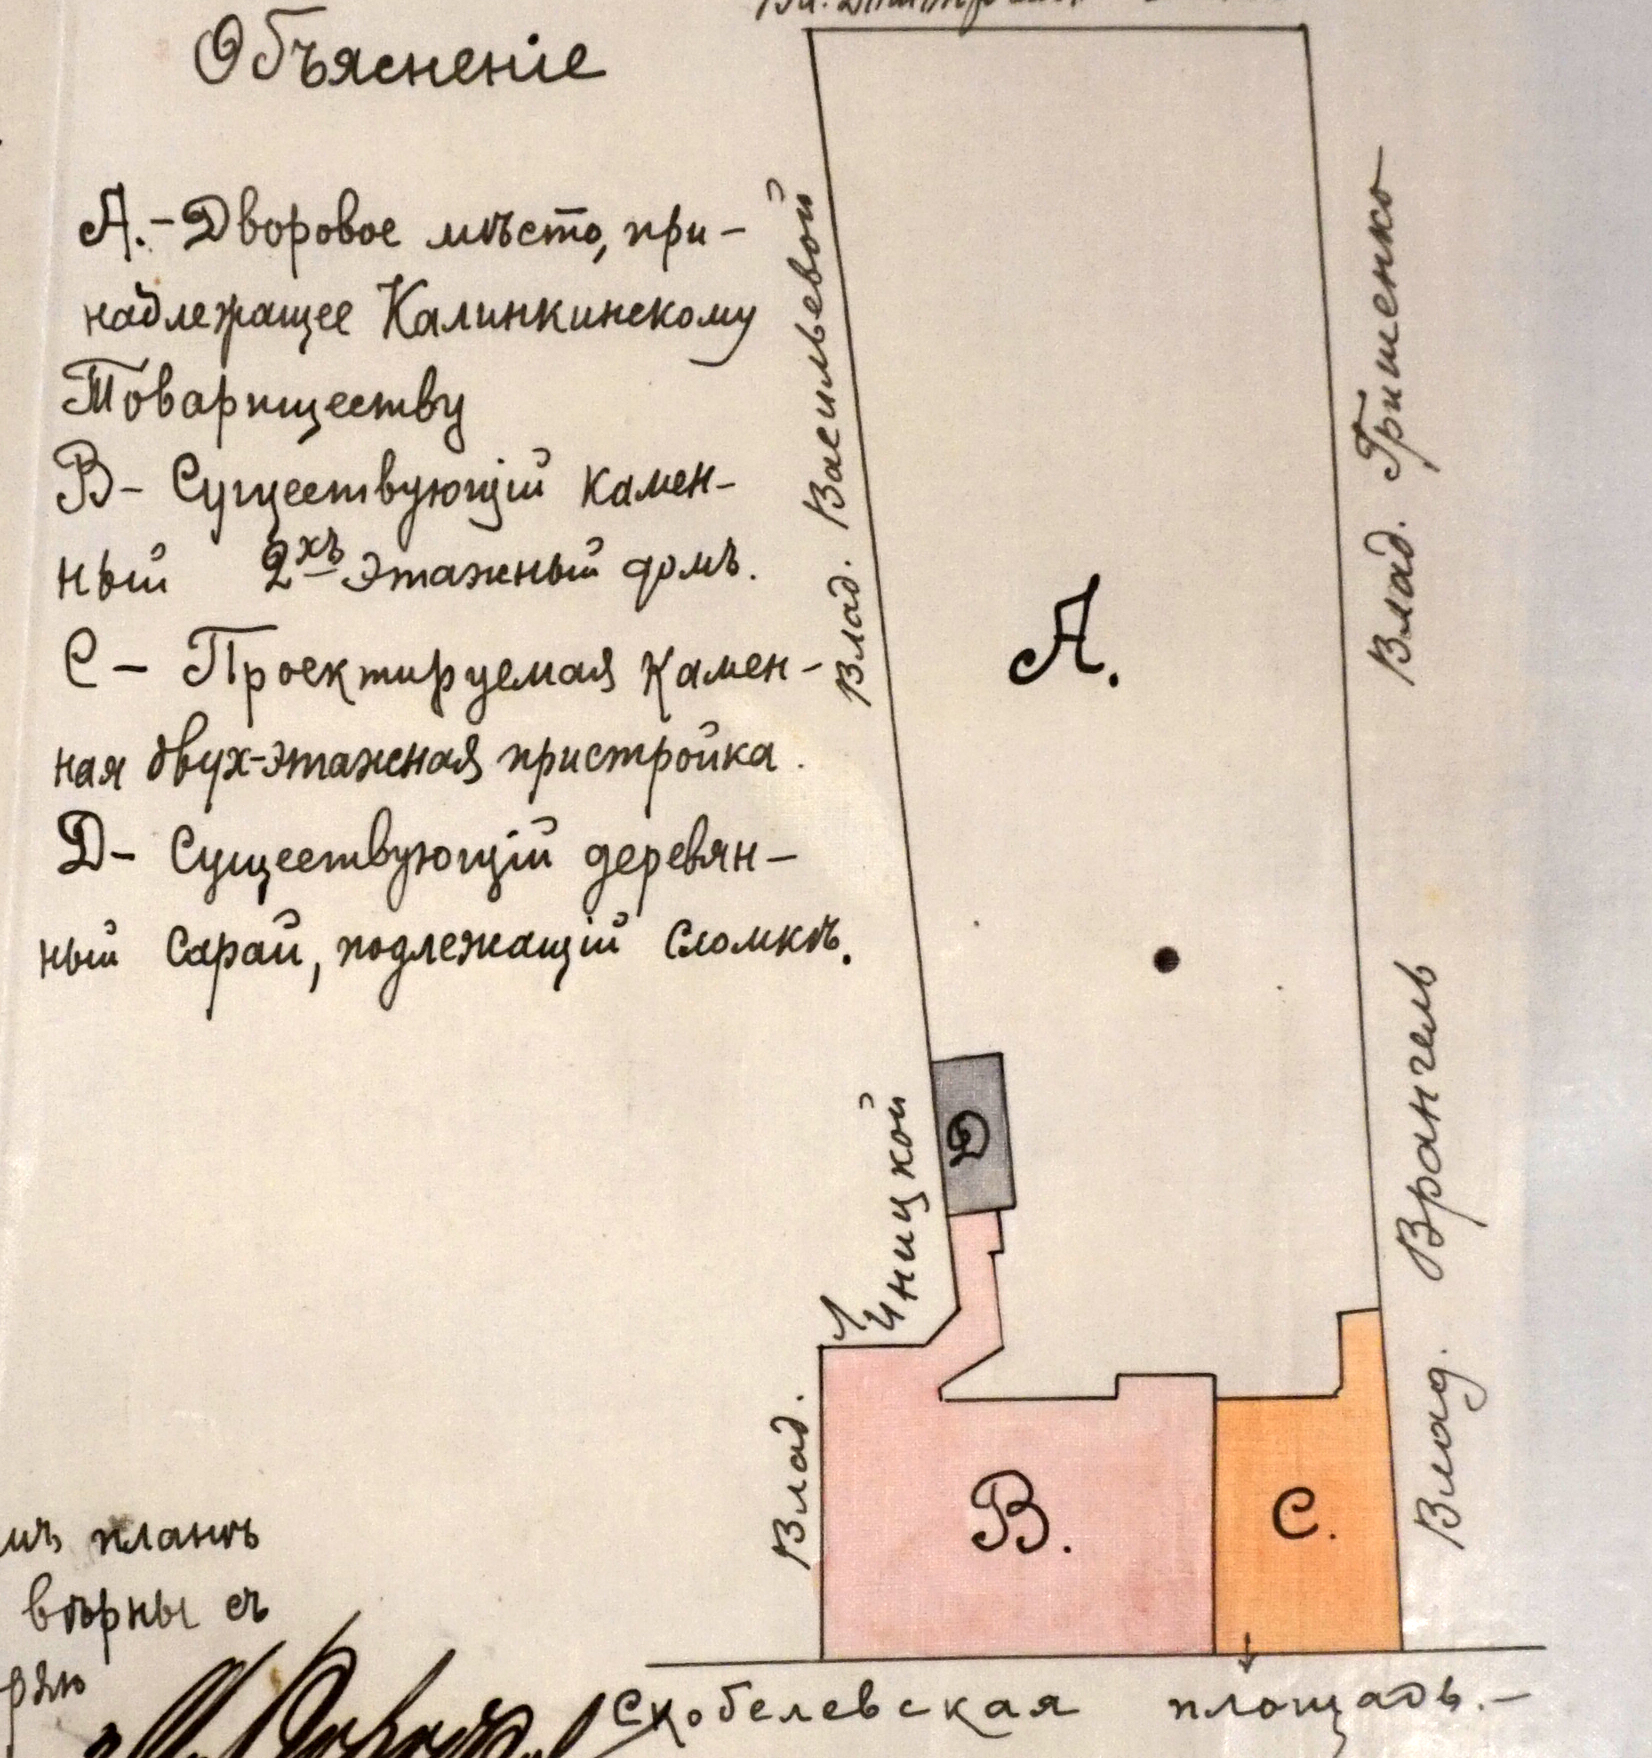 Объясненіе
А.-Дворовое мѣсто, при-
надлежащее Калинкинскому
Товариществу
В- Существующій камен-
ный 2хъ этажный домъ.
С - Проектируемая камен-
ная двух-этажная пристройка.
D- Существующій деревян-
ный сарай, подлежащій сломкѣ.
Влад. Васильевой
Влад. Гришенко
А.
D
Влад. Линицкой
Влад. Врангель
В.
С.
Скобелевская площадь.-
планѣ
вѣрны съ